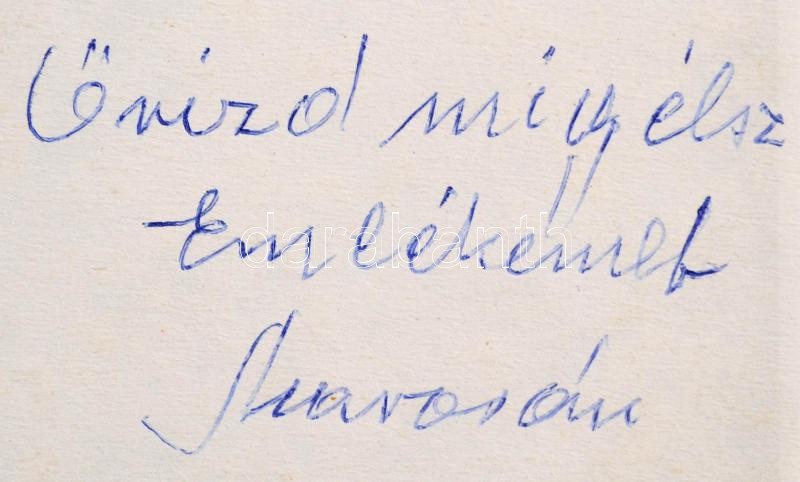 Őrizd míg élsz
Emlékemet
darabanth